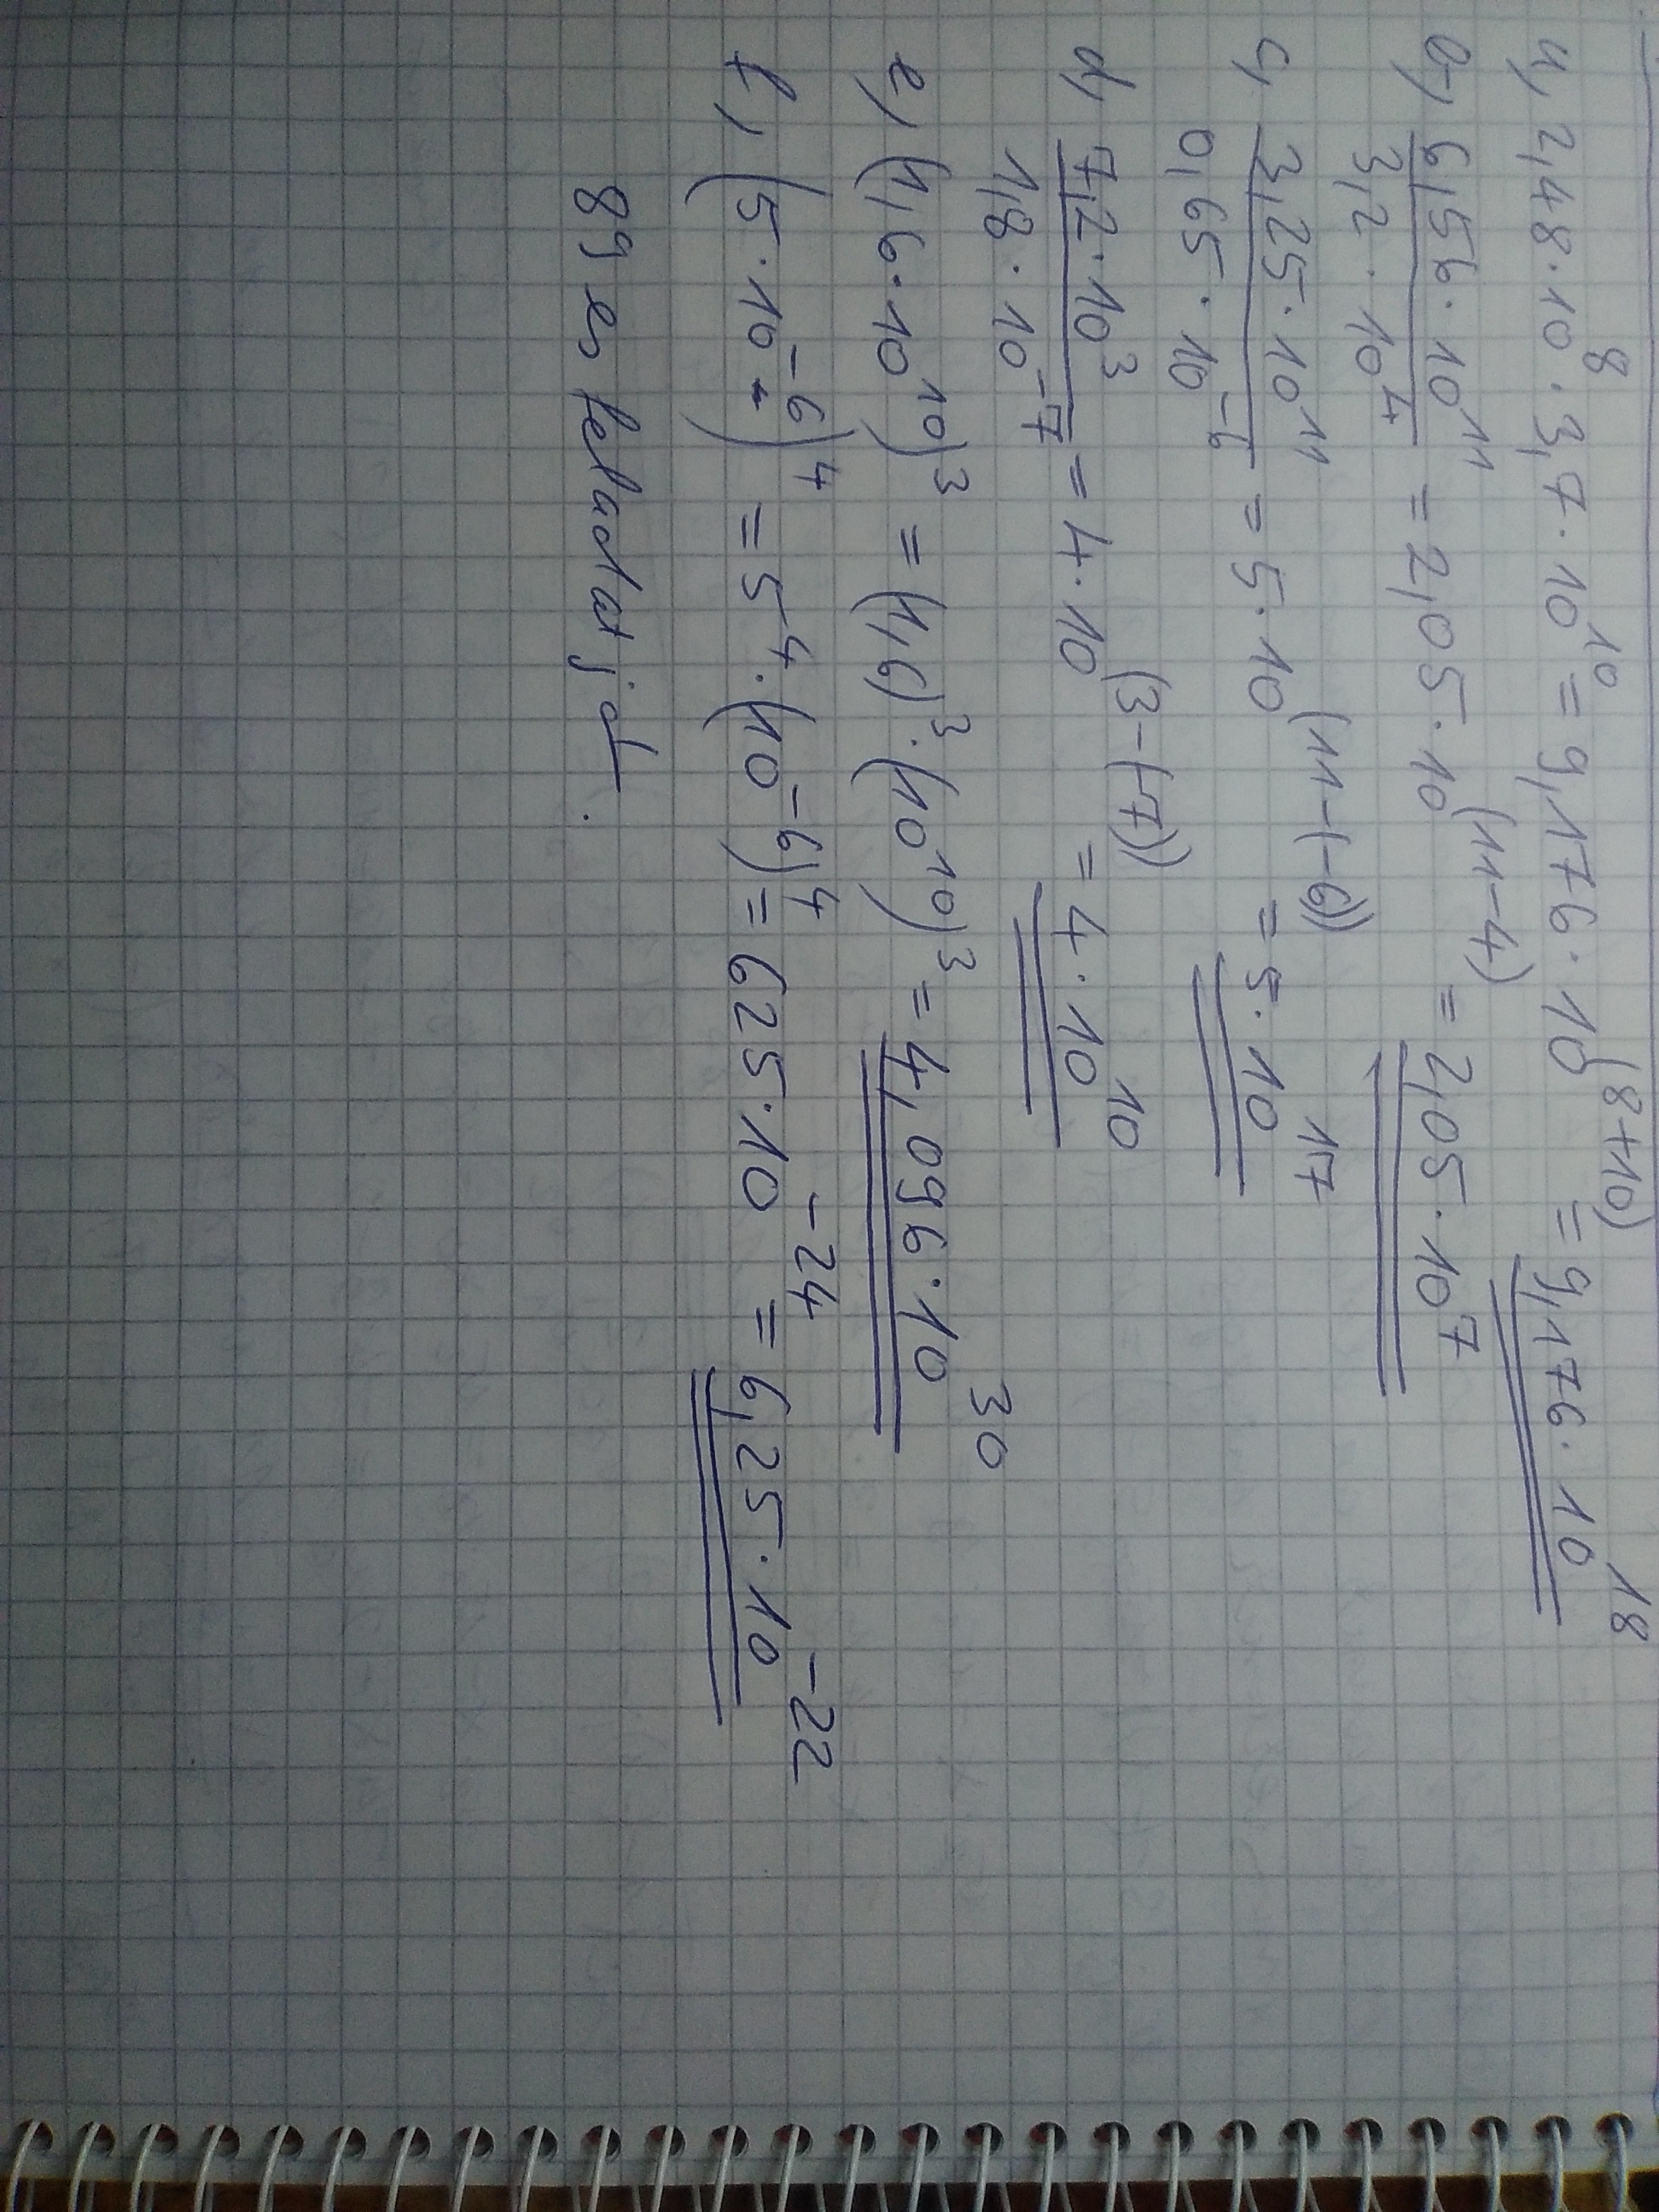 a, 2,48·10⁸·3,7·10¹⁰ = 9,176·10⁽⁸⁺¹⁰⁾ = 9,176·10¹⁸
b, 6,56·10¹¹ / 3,2·10⁴ = 2,05·10⁽¹¹⁻⁴⁾ = 2,05·10⁷
c, 3,25·10¹¹ / 0,65·10⁻⁶ = 5·10⁽¹¹⁻⁽⁻⁶⁾⁾ = 5·10¹⁷
d, 7,2·10³ / 1,8·10⁻⁷ = 4·10⁽³⁻⁽⁻⁷⁾⁾ = 4·10¹⁰
e, (1,6·10¹⁰)³ = (1,6)³·(10¹⁰)³ = 4,096·10³⁰
f, (5·10⁻⁶)⁴ = 5⁴·(10⁻⁶)⁴ = 625·10⁻²⁴ = 6,25·10⁻²²
89 es feladat jó.